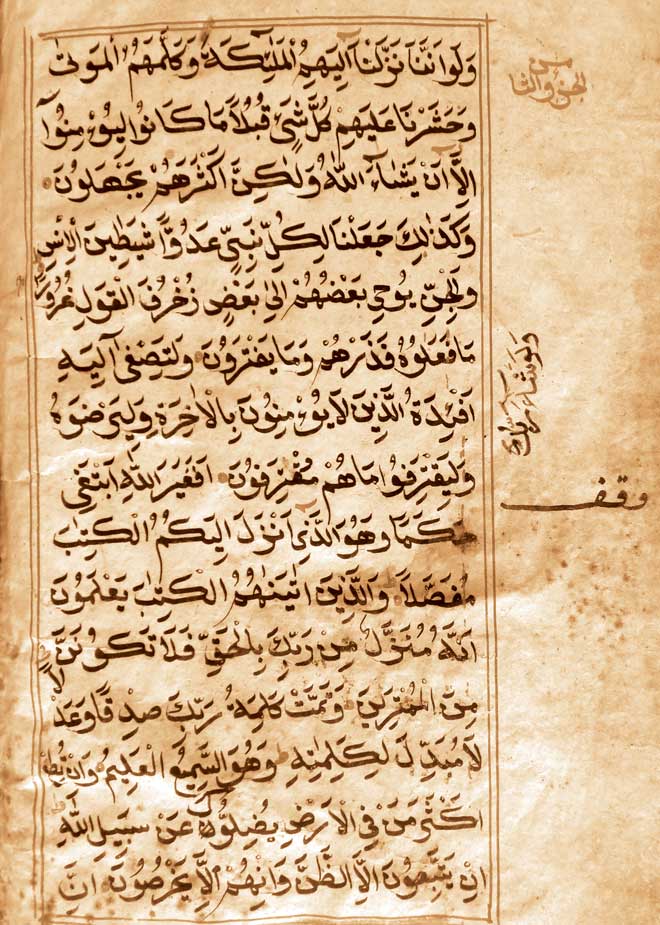 وَلَوْ اَنَّنَا نَزَّلْنَا اِلَيْهِمُ الْمَلٰٓئِكَةَ وَكَلَّمَهُمُ الْمَوْتٰى
وَحَشَرْنَا عَلَيْهِمْ كُلَّ شَيْءٍ قُبُلًا مَا كَانُوا لِيُؤْمِنُوٓا
اِلَّآ اَنْ يَشَآءَ اللّٰهُ وَلٰكِنَّ اَكْثَرَهُمْ يَجْهَلُونَ
وَكَذٰلِكَ جَعَلْنَا لِكُلِّ نَبِيٍّ عَدُوًّا شَيٰطِينَ الْاِنْسِ
وَالْجِنِّ يُوحِي بَعْضُهُمْ اِلٰى بَعْضٍ زُخْرُفَ الْقَوْلِ غُرُورًا
مَا فَعَلُوهُ فَذَرْهُمْ وَمَا يَفْتَرُونَ وَلِتَصْغٰٓى اِلَيْهِ
اَفْئِدَةُ الَّذِينَ لَا يُؤْمِنُونَ بِالْاٰخِرَةِ وَلِيَرْضَوْهُ
وَلِيَقْتَرِفُوا مَا هُمْ مُقْتَرِفُونَ اَفَغَيْرَ اللّٰهِ اَبْتَغِي
حَكَمًا وَهُوَ الَّذِي اَنْزَلَ اِلَيْكُمُ الْكِتٰبَ
مُفَصَّلًا وَالَّذِينَ اٰتَيْنٰهُمُ الْكِتٰبَ يَعْلَمُونَ
اَنَّهُ مُنَزَّلٌ مِنْ رَبِّكَ بِالْحَقِّ فَلَا تَكُونَنَّ
مِنَ الْمُمْتَرِينَ وَتَمَّتْ كَلِمَةُ رَبِّكَ صِدْقًا وَعَدْلًا
لَا مُبَدِّلَ لِكَلِمٰتِهِ وَهُوَ السَّمِيعُ الْعَلِيمُ وَاِنْ تُطِعْ
اَكْثَرَ مَنْ فِي الْاَرْضِ يُضِلُّوكَ عَنْ سَبِيلِ اللّٰهِ
اِنْ يَتَّبِعُونَ اِلَّا الظَّنَّ وَاِنْ هُمْ اِلَّا يَخْرُصُونَ اِنَّ
وَلَوْ شَآءَ رَبُّكَ
وقف